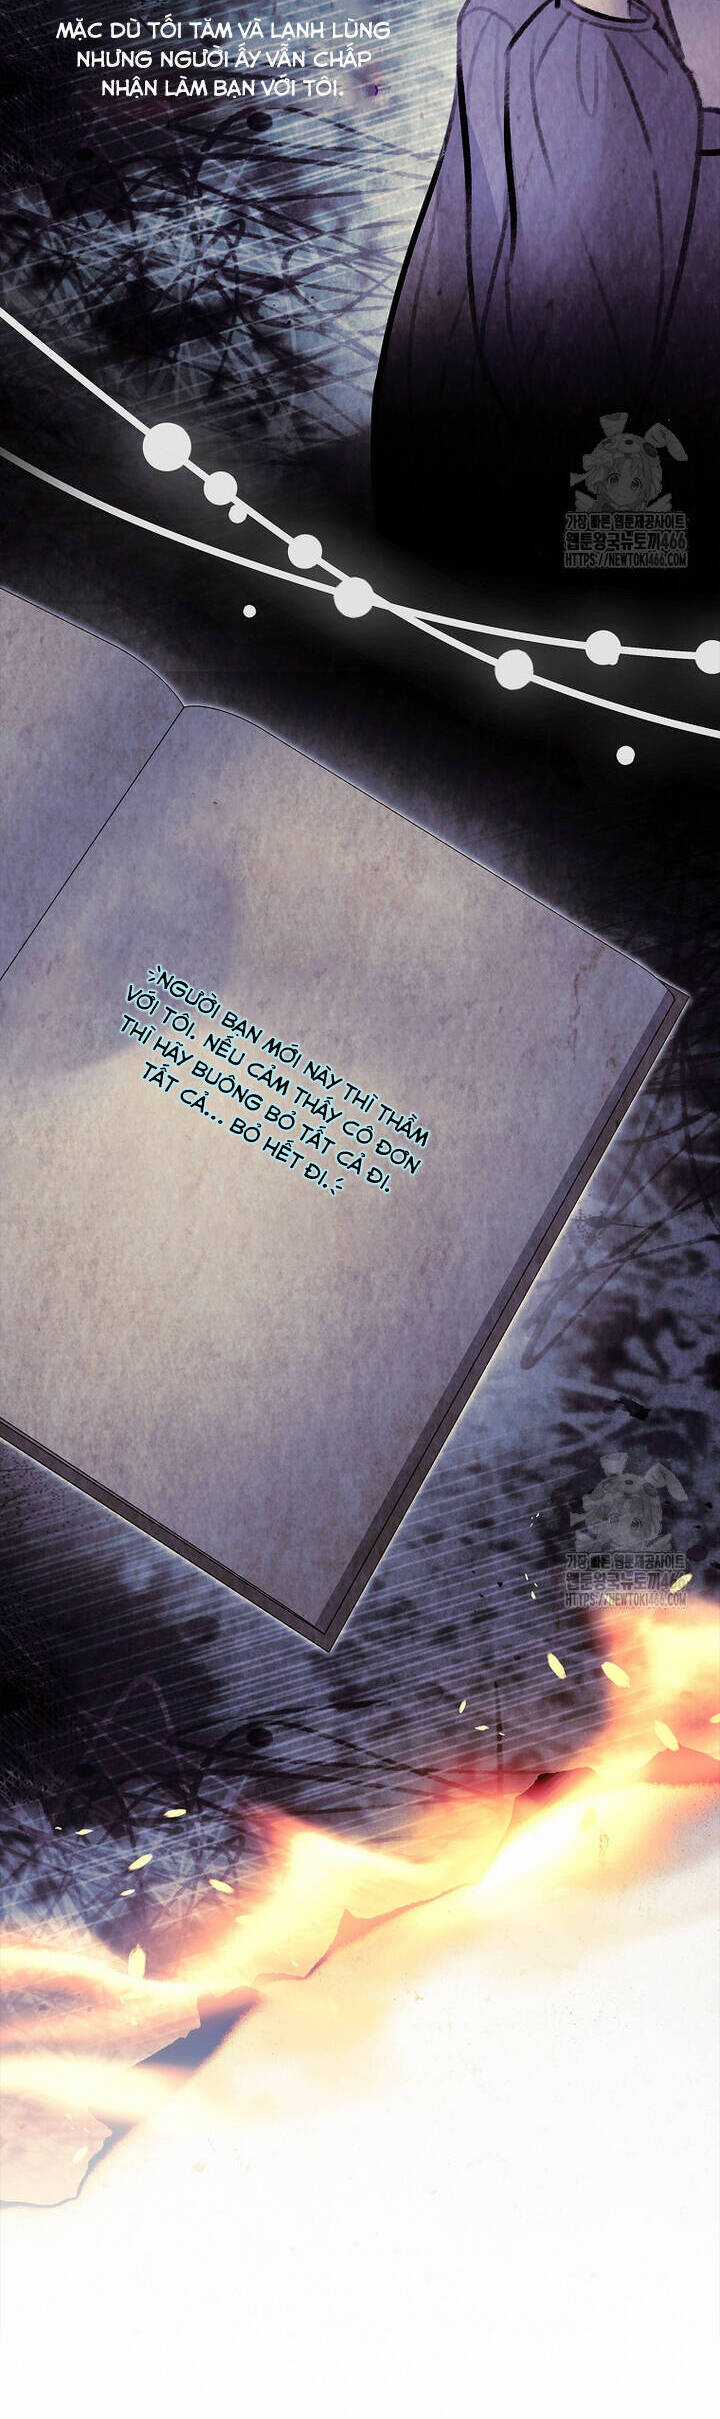 MẶC DÙ TỐI TĂM VÀ LẠNH LÙNG
NHƯNG NGƯỜI ẤY VẪN CHẤP
NHẬN LÀM BẠN VỚI TÔI.
가장 빠른 웹툰제공사이트
웹툰왕국뉴토끼466
HTTPS://NEWTOKI466.COM
NGƯỜI BẠN MỚI NÀY THÌ THẦM
VỚI TÔI. NẾU CẢM THẤY CÔ ĐƠN
THÌ HÃY BUÔNG BỎ TẤT CẢ ĐI.
TẤT CẢ... BỎ HẾT ĐI.
가장 빠른 웹툰제공사이트
웹툰왕국뉴토끼466
HTTPS://NEWTOKI466.COM